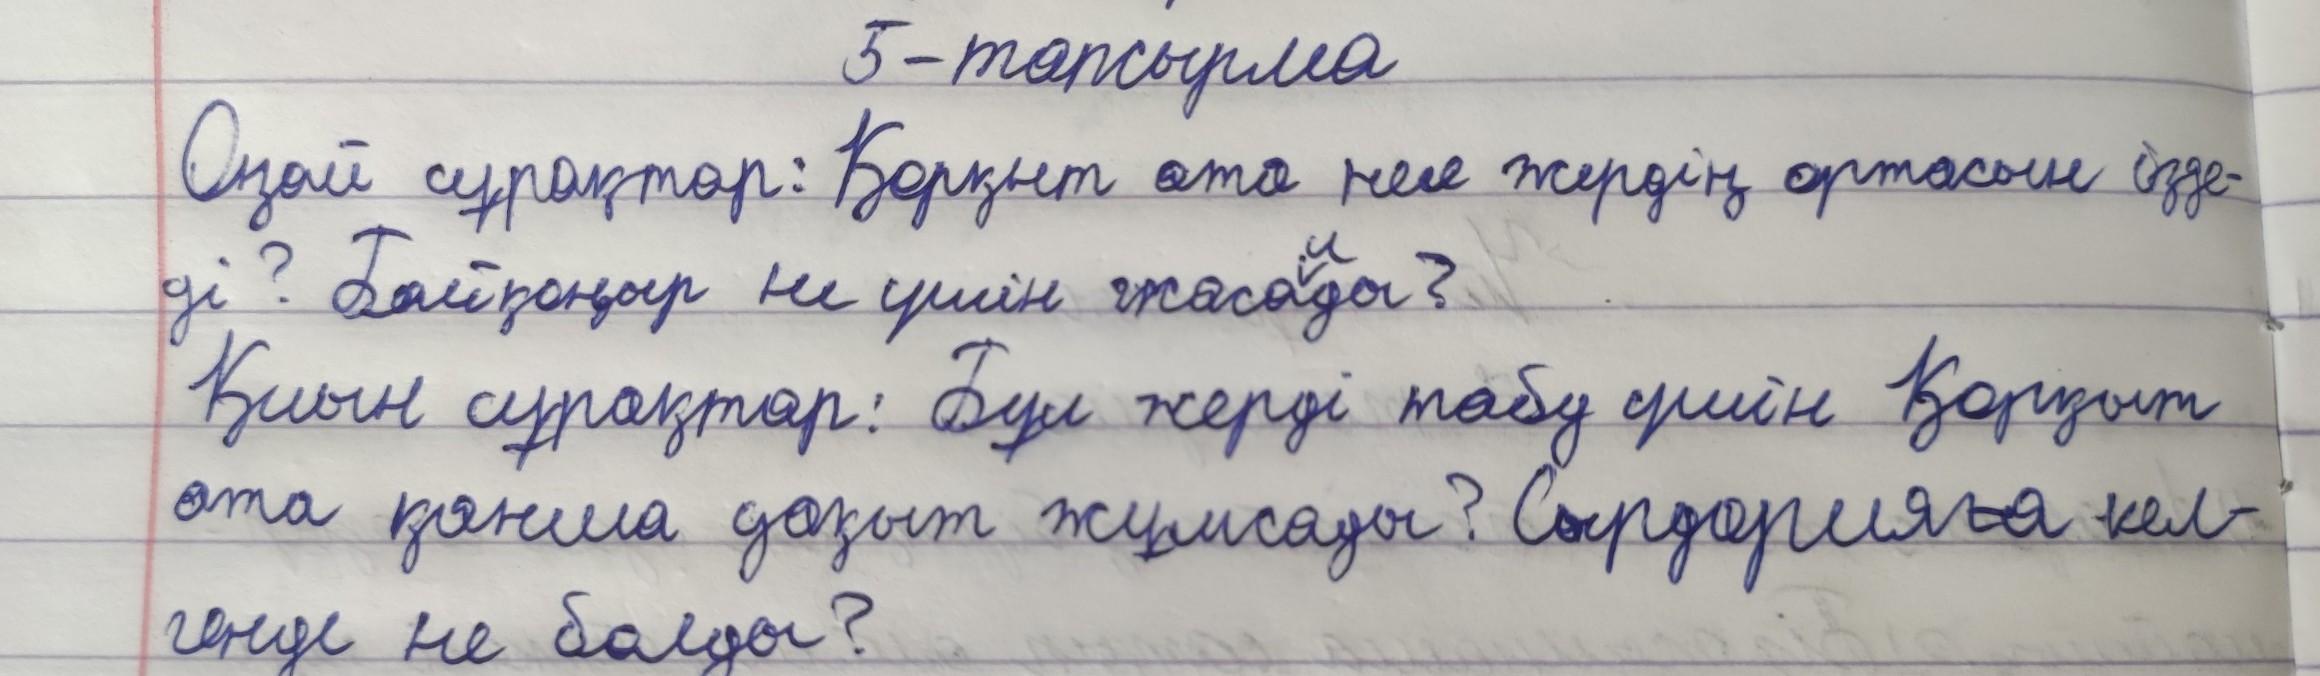 5-тапсырма
Оңай сұрақтар: Қорқыт ата неге жердің ортасын ізде-
ді? Байқоңыр не үшін жасайды?
Қиын сұрақтар: Бұл жерді табу үшін Қорқыт
ата қанша уақыт жұмсады? Сырдарияға кел-
генде не болды?